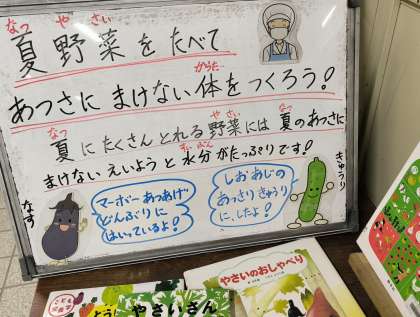 なつ やさい
夏野菜をたべて
からだ
あつさに まけない体をつくろう!
なつ やさい なつ
夏にたくさんとれる野菜には 夏のあつさに
すいぶん
まけない えいようと水分がたっぷりです!
なす
マーボーあつあげ
どんぶりに
はいっているよ!
しおあじの
あっさりきゅうり
に、したよ!
きゅうり
やさいさん
やさいのおしゃべり